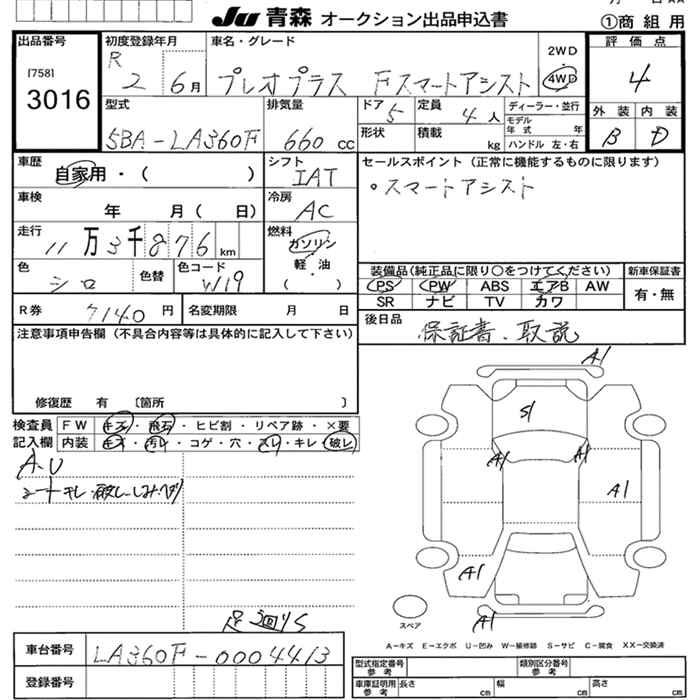 Ju 青森 オークション出品申込書
①商組用
出品番号
[758]
3016
初度登録年月
R 2 6月
車名・グレード
プレオプラス Fスマートアシスト
2WD
4WD
評価点
4
外装 内装
B D
型式
5BA-LA360F
排気量
660 cc
ドア 5
定員 4人
形状
積載 kg
ディーラー・並行
モデル年式 年
ハンドル 左・右
車歴
自家用・( )
シフト
IAT
セールスポイント(正常に機能するものに限ります)
・スマートアシスト
車検
年 月( 日)
冷房
AC
走行
11万3千876km
燃料
ガソリン
軽・油
( )
色
シロ
色替
色コード
W19
装備品(純正品に限り○をつけてください)
新車保証書
PS PW ABS エアB AW
SR ナビ TV カワ
有・無
R券 7140円
名変期限 月 日
後日品
保証書、取説
注意事項申告欄(不具合内容等は具体的に記入して下さい)
修復歴 有 〔箇所 〕
検査員
記入欄
FW キズ・飛石・ヒビ割・リペア跡・×要
内装 キズ・汚レ・コゲ・穴・スレ・キレ・破レ
A.U
シートキレ・破レ・シミ・ヘタリ
足廻りS
A1
S1
A1
A1
A1
A1
A1
スペア
A-キズ E-エクボ U-凹み W-補修跡 S-サビ C-腐食 XX-交換済
車台番号
LA360F-0004413
登録番号
型式指定番号
参考
類別区分番号
参考
車庫証明用
参考
長さ cm 幅 cm 高さ cm